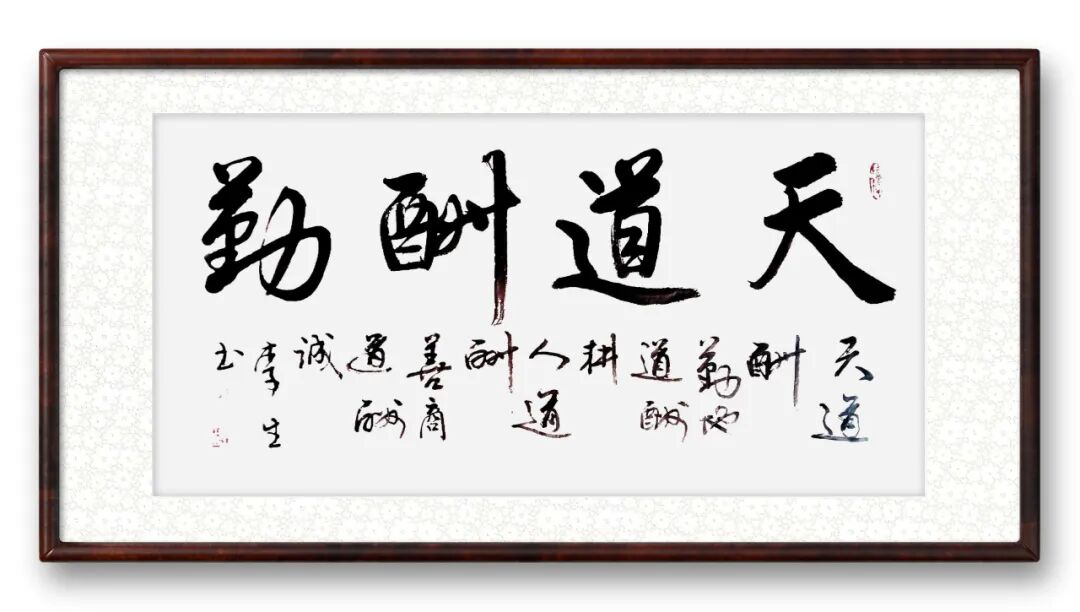 天道酬勤
天道
酬
勤地
道酬
耕
人道
酬
善商
道酬
诚
李生
书